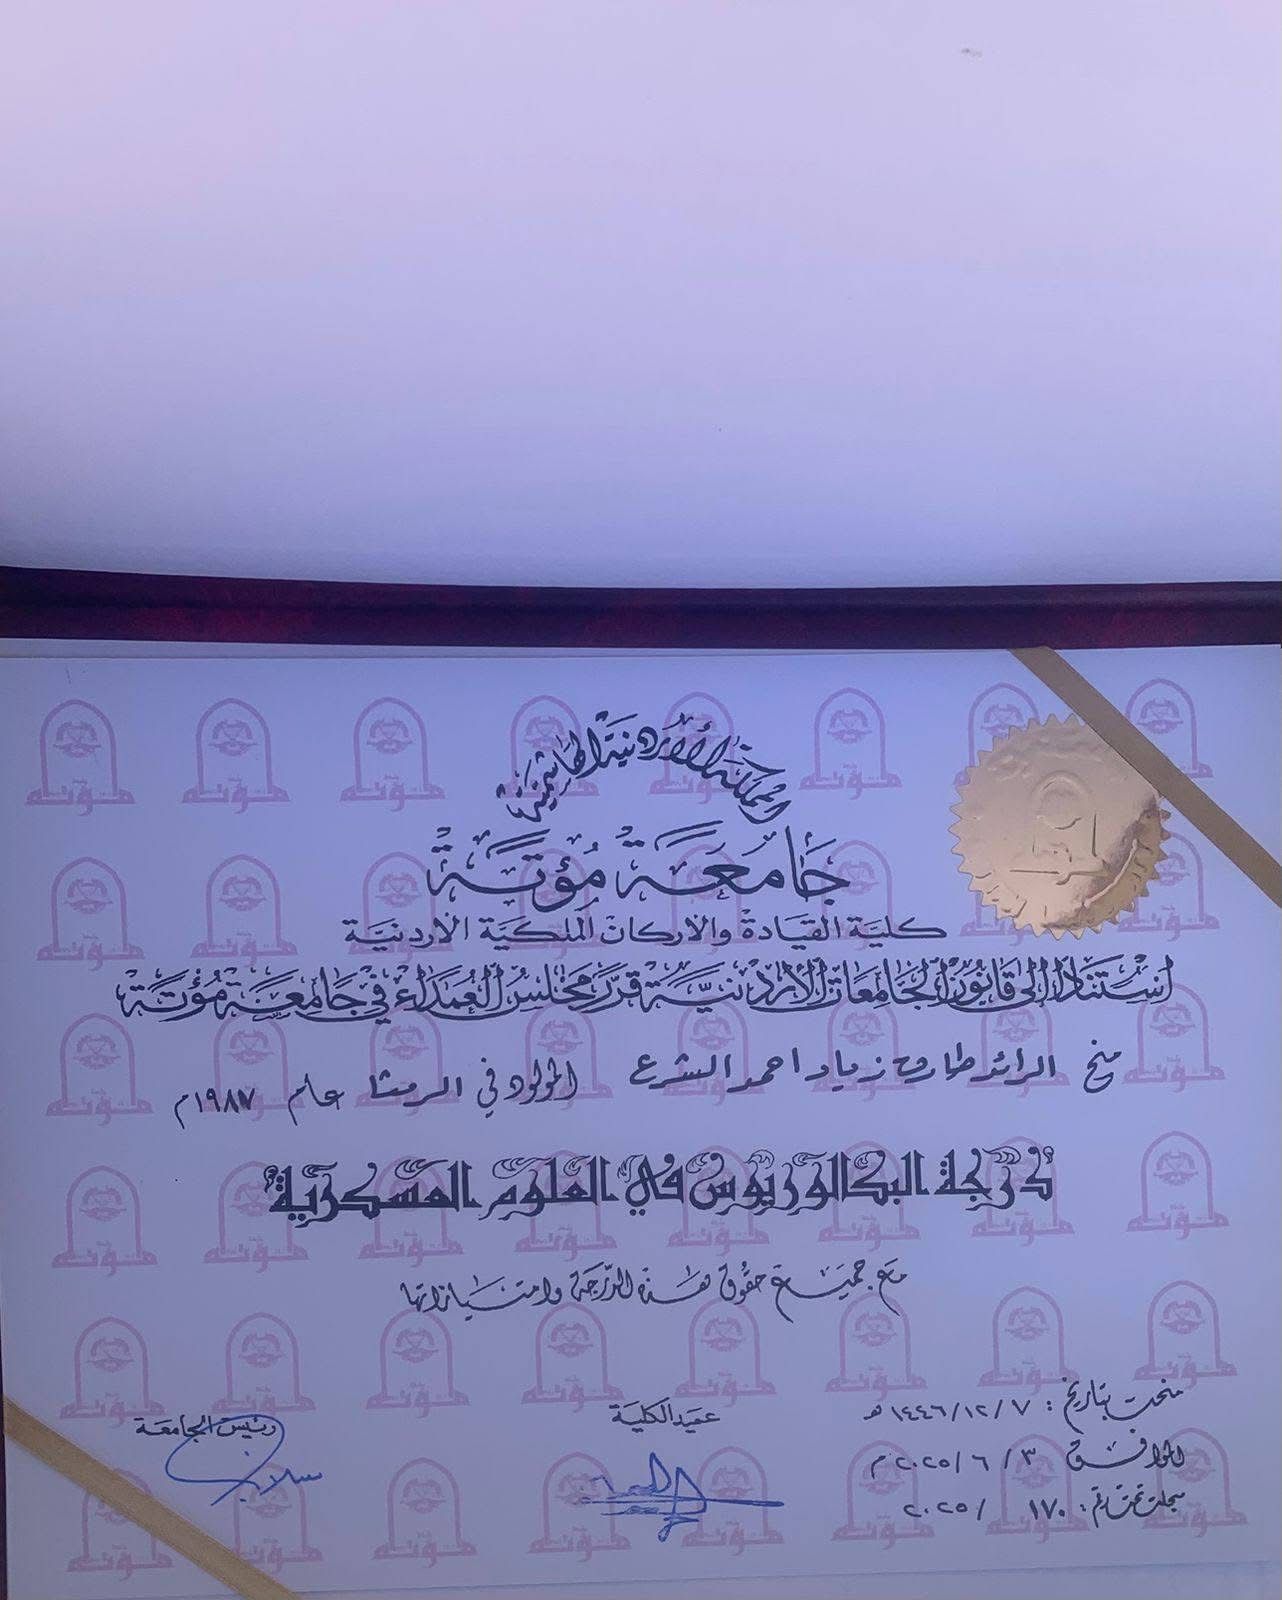 المملكة الأردنية الهاشمية
جَامعَة مُؤتَة
كلية القيادة والاركان الملكية الاردنية
استناداً إلى قانون الجامعات الأردنيّة قرر مجلس العمداء في جامعة مؤتة
منح الرائد طارق زياد احمد الشرع المولود في الرمثا عام ١٩٨٧م
درجة البكالوريوس في العلوم العسكرية
مع جميع حقوق هذه الدرجة وامتيازاتها
منحت بتاريخ : ١٤٤٦/١٢/٧ هـ
الموافق ٢٠٢٥/٦/٣ م
سجلت تحت رقم : ١٧٠ / ٢٠٢٥
عميد الكلية
رئيس الجامعة
جامعة مؤتة